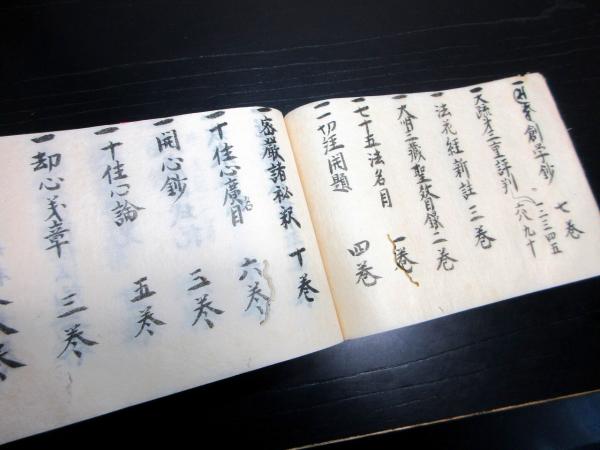 創学鈔 七巻
一大疏第三重評判 一二三四五
六八九十
一法花経新註 三巻
一大明三蔵聖教目録 二巻
一七十五法名目 一巻
一一切経開題 四巻
一密厳諸秘釈 十巻
一十住心廣名目 六巻
一開心鈔 三巻
一十住心論 五巻
一却心義章 三巻